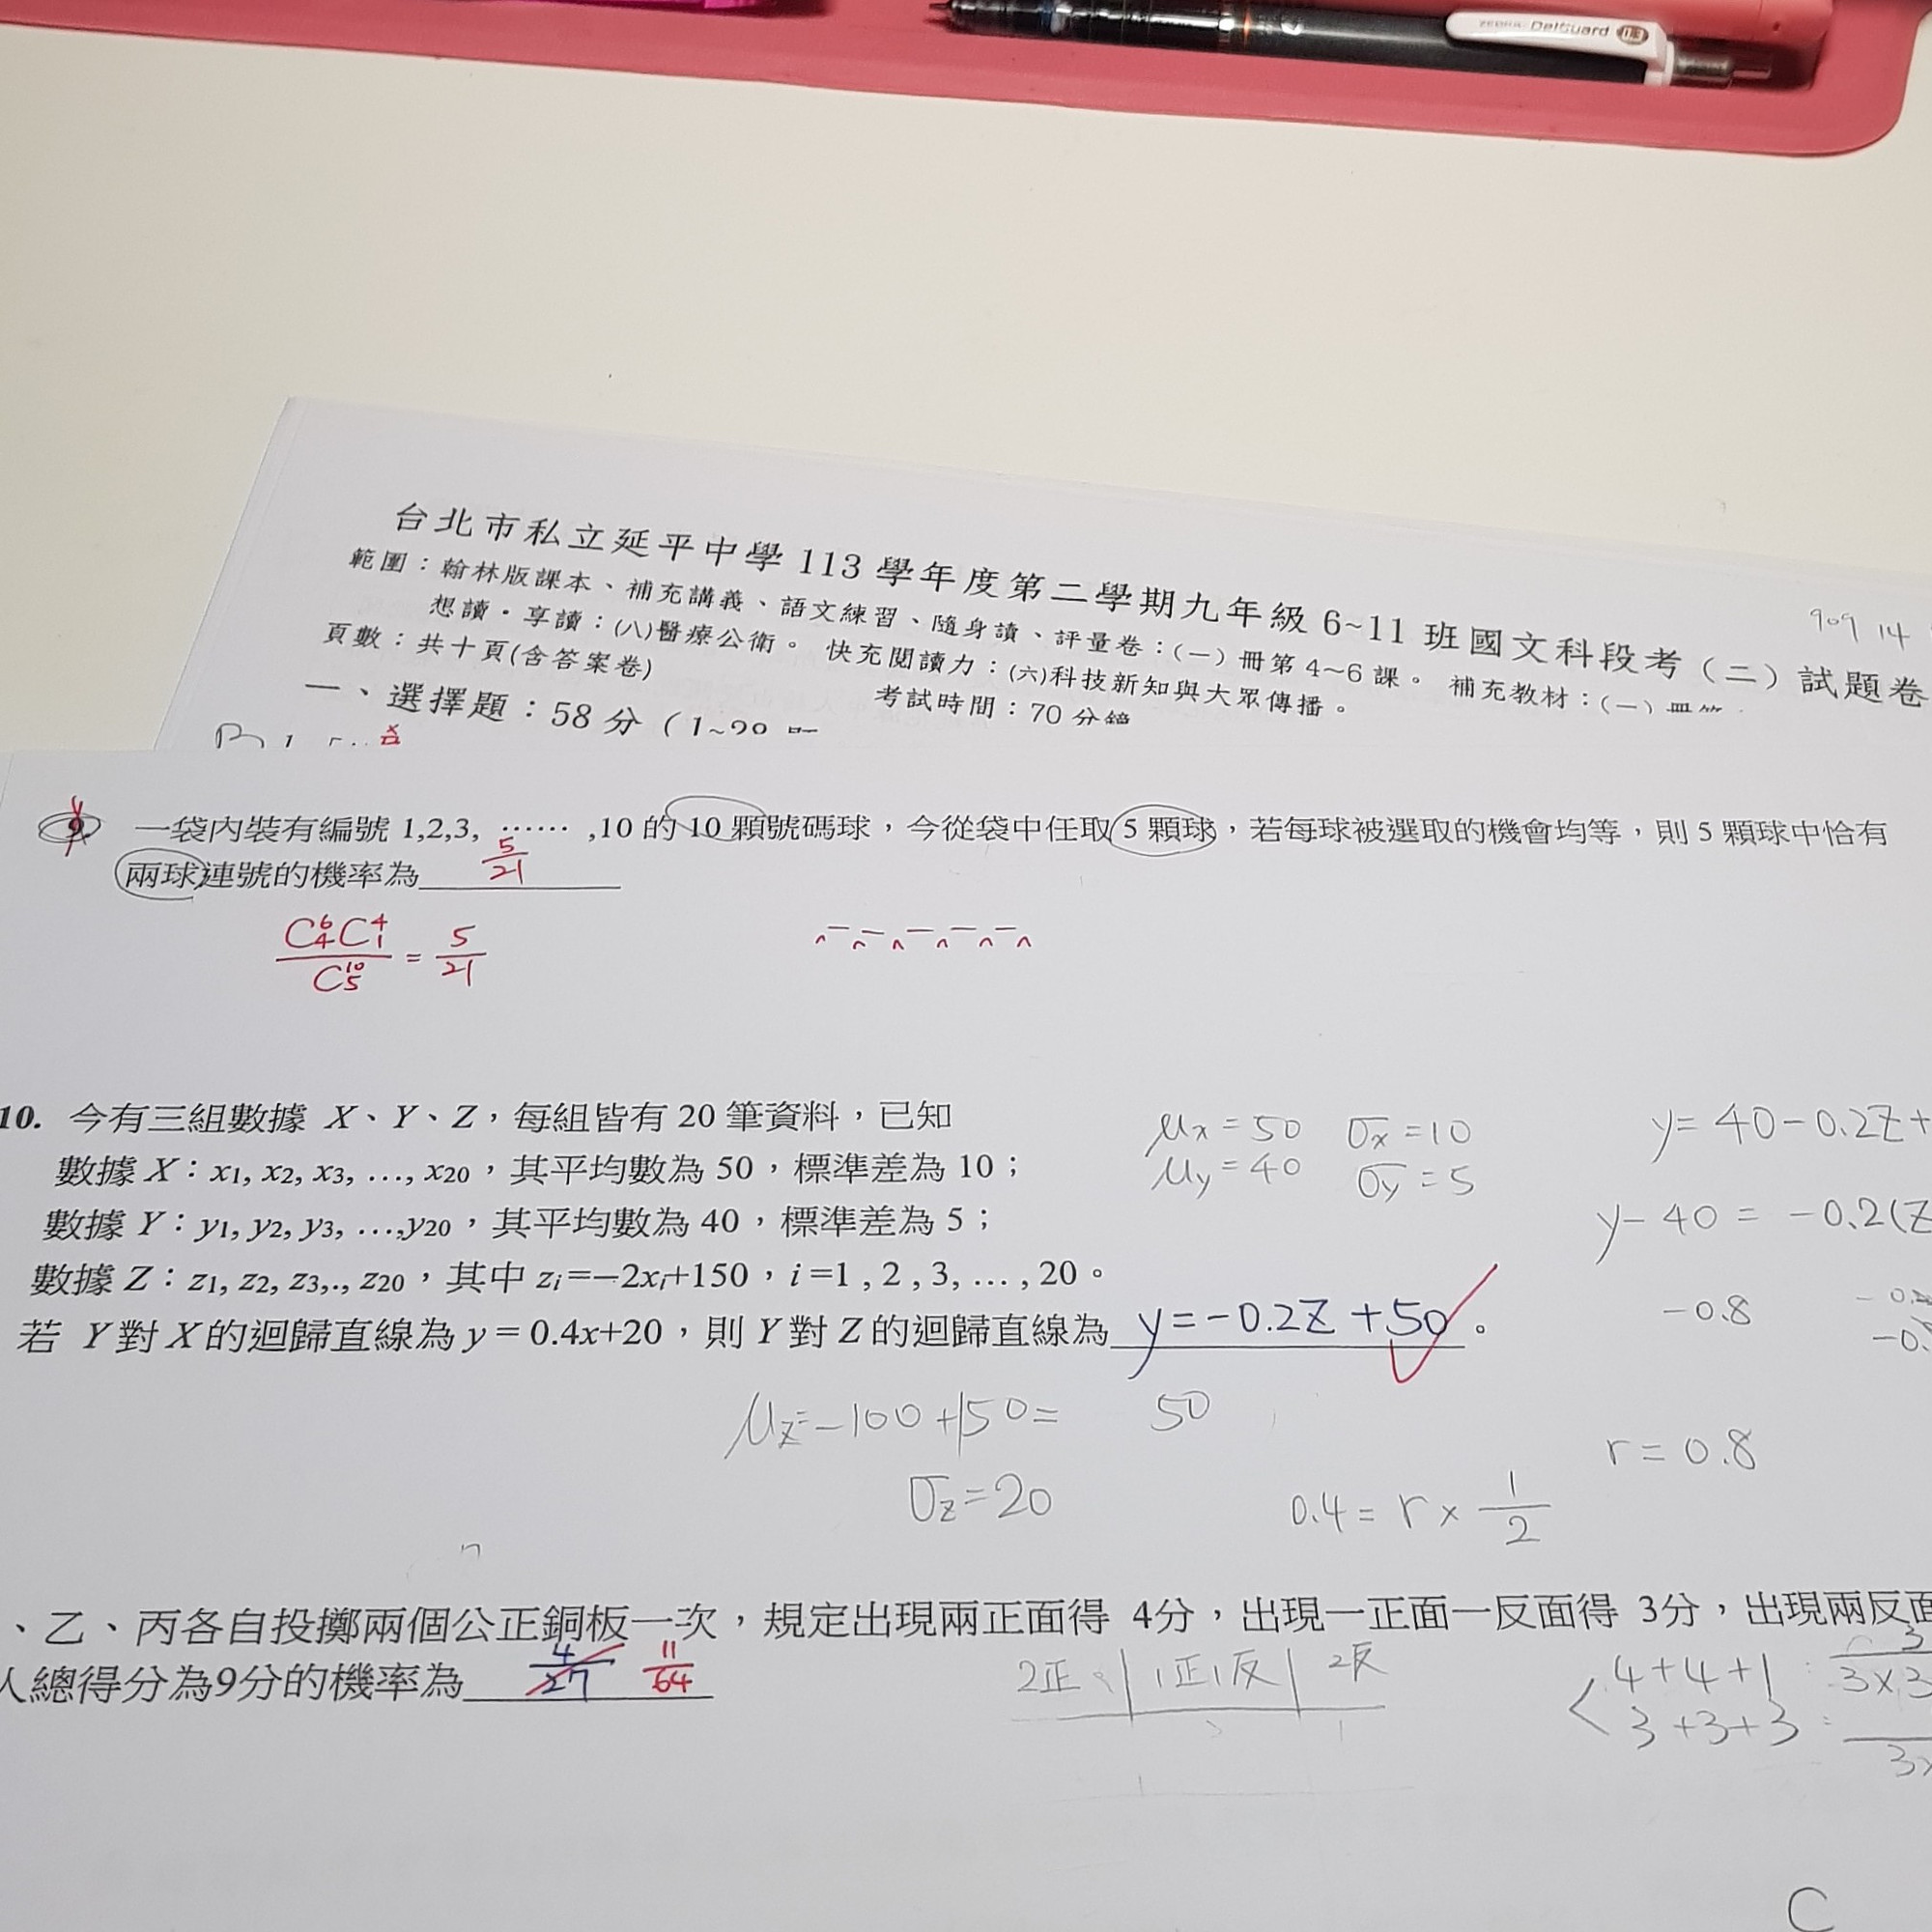 ZEBRA DelGuard 0.3
台北市私立延平中學 113 學年度第二學期九年級 6~11 班國文科段考（二）試題卷
範圍：翰林版課本、補充講義、語文練習、隨身讀、評量卷：(一) 冊第 4~6 課。 補充教材：(一) 冊第
想讀・享讀：(八)醫療公衛。 快充閱讀力：(六)科技新知與大眾傳播。
頁數：共十頁(含答案卷)
考試時間：70 分鐘
909 14
一、選擇題：58 分（1~29
9. 一袋內裝有編號 1,2,3, ⋯⋯ ,10 的 10 顆號碼球，今從袋中任取 5 顆球，若每球被選取的機會均等，則 5 顆球中恰有
兩球連號的機率為 5/21
C⁶₄C⁴₁ / C¹⁰₅ = 5/21
10. 今有三組數據 X、Y、Z，每組皆有 20 筆資料，已知
數據 X：x₁, x₂, x₃, …, x₂₀，其平均數為 50，標準差為 10；
數據 Y：y₁, y₂, y₃, …,y₂₀，其平均數為 40，標準差為 5；
數據 Z：z₁, z₂, z₃,., z₂₀，其中 zᵢ=−2xᵢ+150，i =1 , 2 , 3, … , 20。
若 Y 對 X 的迴歸直線為 y = 0.4x+20，則 Y 對 Z 的迴歸直線為 y=-0.2Z+50。
μx=50 σx=10
μy=40 σy=5
y=40-0.2Z+
y-40=-0.2(Z
-0.8
μz=-100+150= 50
σz=20
0.4=r×1/2
r=0.8
、乙、丙各自投擲兩個公正銅板一次，規定出現兩正面得 4分，出現一正面一反面得 3分，出現兩反面
人總得分為9分的機率為 4/27 11/64
2正 1正1反 2反
4+4+1
3+3+3
C